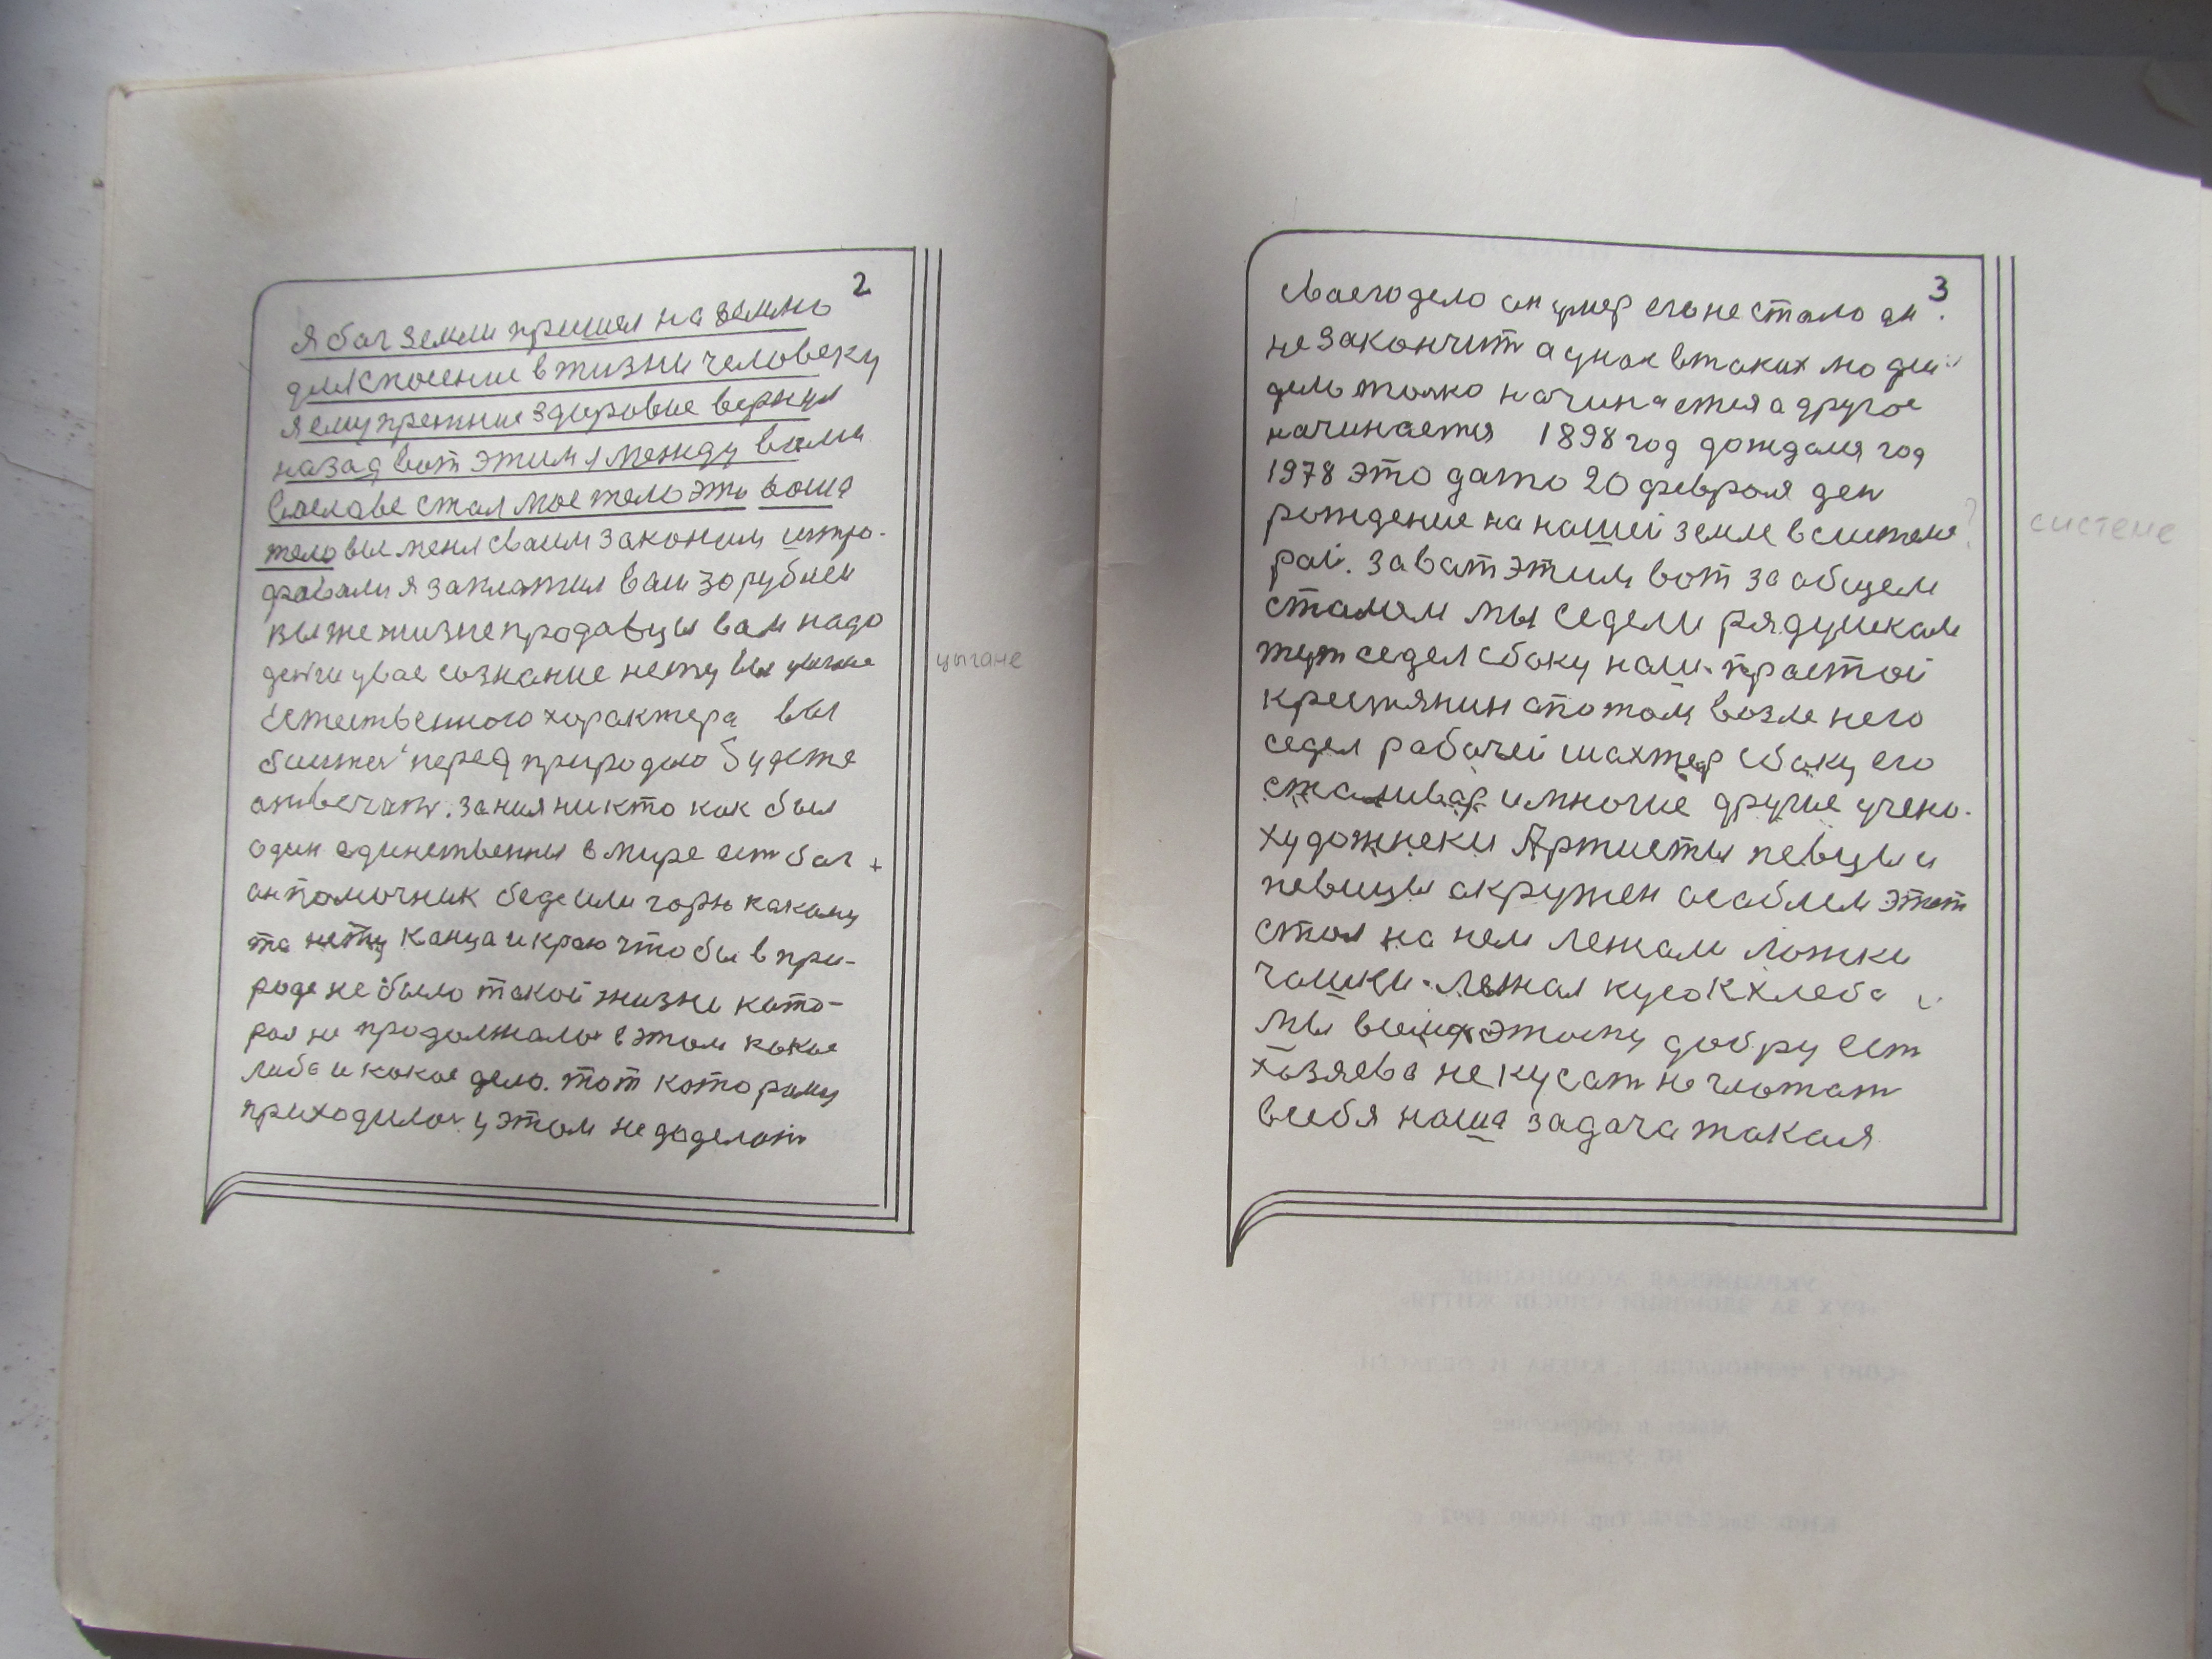 2
я бог земли пришел на землю
для спасение в жизни человеку
я ему прежние здоровие вернул
назад вот этим я между вами
вселаве стал мое тело это ваша
тело вы меня сваим законим штро-
фовали я заплатил вам 30 рублей
вы же жизне продавцы вам надо
денги увас сознание нету вы
естественного характера вы
боитес перед природою будете
атвечать. заниял никто как был
один единственны в мире ест бог +
ан помочник беде или горю какому
та нету канца и краю чтобы в при-
роде не было такой жизне като-
рая не продолжалас в этом какое
либа и какое дело. тот каторому
приходилос у этом не доделат
цыгане
3
сваего дело он умер его не стало он.
не закончит а унас в таких людей
дело толко начинается а другое
начинается 1898 год дождался год
1978 это дато 20 февроля ден
рождение на нашей земле в системе ?
рай. за ват этим вот за общем
сталом мы седели рядушкам
тут седел сбоку наш простой
крестянин спотом возле него
седел рабочей шахтер сбоку его
сталивар и многие другие учено.
художнеки Артисты певцы и
певицы акружен асаблем этот
стол на нем лежали ложки
чашки. лежал кусок хлеба
мы всему этому добру ест
хозяева не кусат не глотат
в себя наша задача такая
систене
УКРАИНСКАЯ АССОЦИАЦИЯ